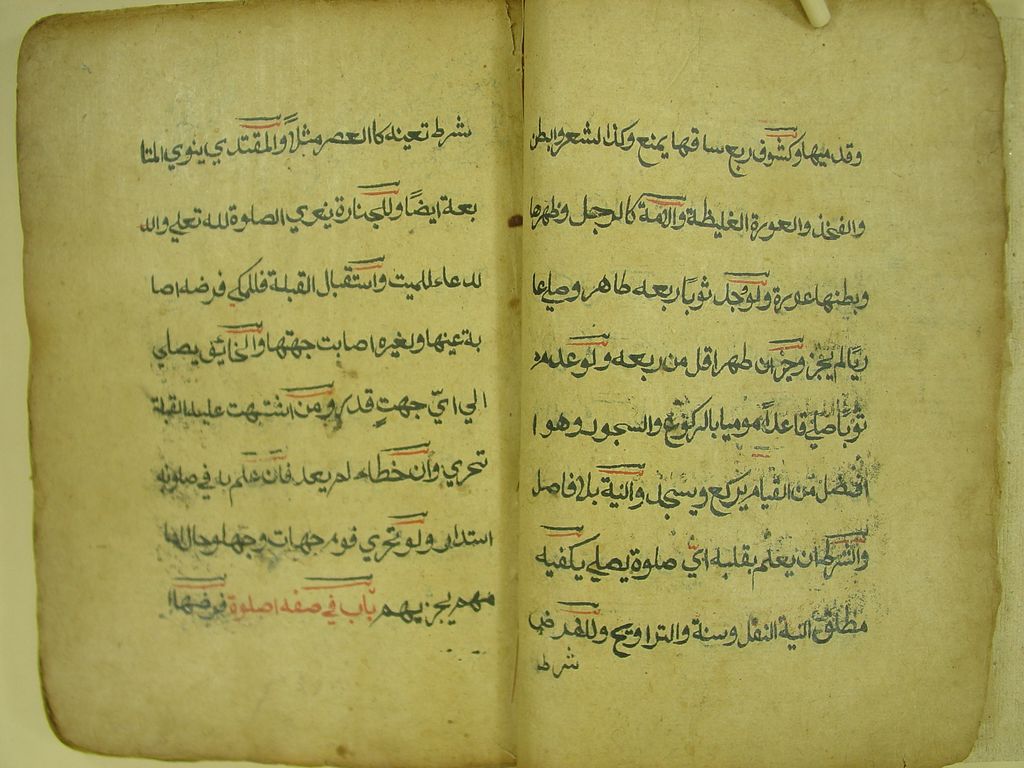 وقدميها وكشوف ربع ساقها يمنع وكذا الشعر والبطن
والفخذ والعورة الغليظة والامة كالرجل وظهرها
وبطنها عورة ولو وجد ثوبا ربعه طاهر وصلي عا
ريا لم يجز وخير ان طهر اقل من ربعه ولو عدم
ثوبا صلي قاعدا موميا بالركوع والسجود وهو ا
افضل من القيام يركع ويسجد والنية بلا فاصل
والشرط ان يعلم بقلبه اي صلوة يصلي يكفيه
مطلق النية النفل وسنة والتراويح وللفرض
شرط
شرط تعينه كا العصر مثلاً والمقتدي ينوي المتا
بعة ايضاً وللجنازة ينوي الصلوة لله تعلي والد
لدعاء للميت واستقبال القبلة فللمكي فرضه اصا
بة عينها ولغيره اصابت جهتها والخائق يصلي
الي ايّ جهت قدر ومن اشتبهت عليه القبلة
تحري وان خطاء لم يعد فان علم به في صلوته
استدار ولو تحري قوم جهات وجهلوحال اما
مهم يجزيهم باب في صفه اصلوة فرضها